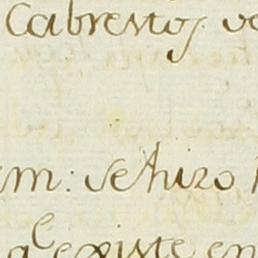 Cabrestos
em: se hizo
q.e existe en